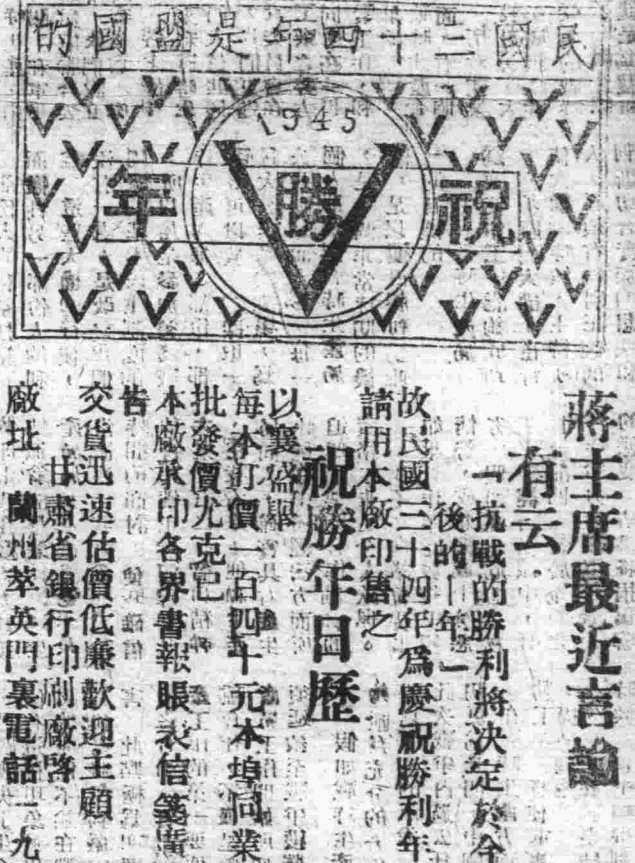 民國三十四年是盟國的
1945
V
祝勝年
蔣主席最近言論
有云：
「抗戰的勝利將決定於今
後的一年」
故民國三十四年爲慶祝勝利年
請用本廠印售之
祝勝年日歷
以襄盛舉
每本訂價一百四十元本埠同業
批發價尤克己
本廠承印各界書報賬表信箋廣
告
交貨迅速估價低廉歡迎主顧
甘肅省銀行印刷廠啓
廠址 蘭州萃英門裏電話一九